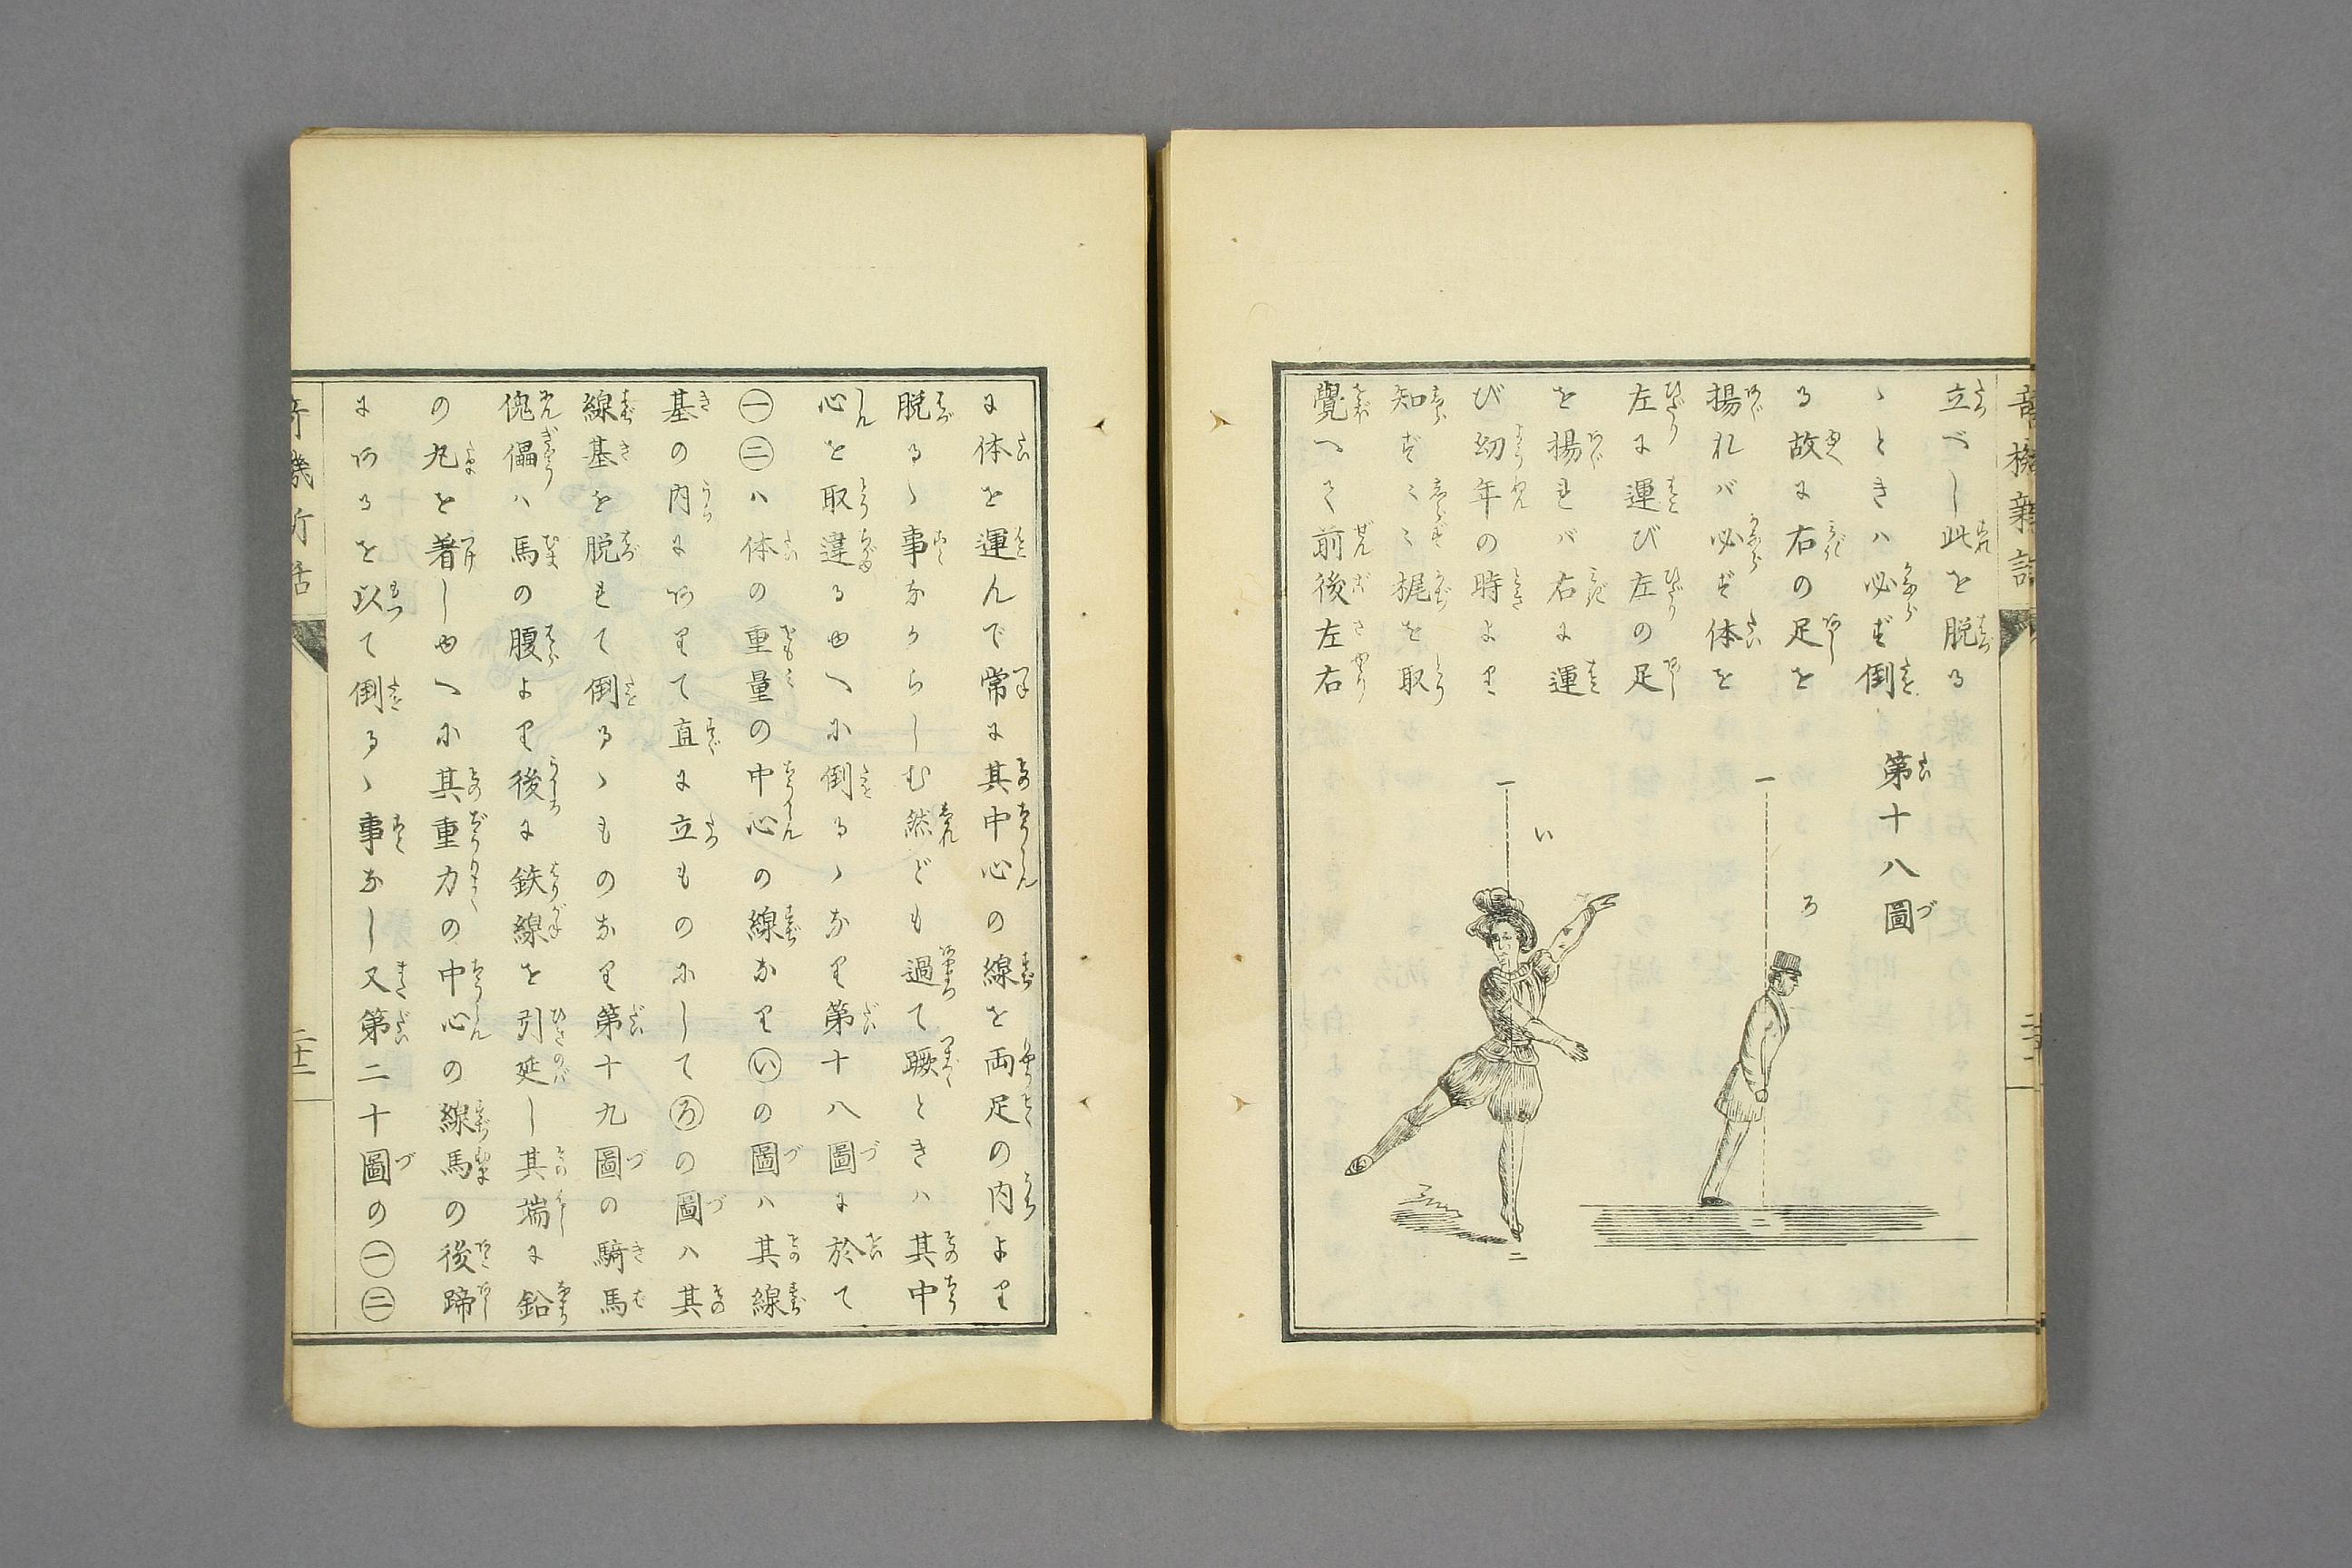 立べし此を脱る
ゝときハ必ず倒
る故に右の足を
揚れバ必ず体を
左に運び左の足
を揚れバ右に運
び幼年の時より
知ず〻〻梶を取
覺へて前後左右
第十八圖
一
ろ
二
一
い
二
に体を運んで常に其中心の線を両足の内より
脱るゝ事なからしむ然ども過て蹶ときハ其中
心を取違るゆへに倒るゝなり第十八圖に於て
㊀㊁ハ体の重量の中心の線なり㋑の圖ハ其線
基の内にありて直に立ものにしてろの圖ハ其
線基を脱れて倒るゝものなり第十九圖の騎馬
傀儡ハ馬の腹より後に鉄線を引延し其端に鉛
の丸を着しゆへに其重力の中心の線馬の後蹄
にあるを以て倒るゝ事なし又第二十圖の㊀㊁